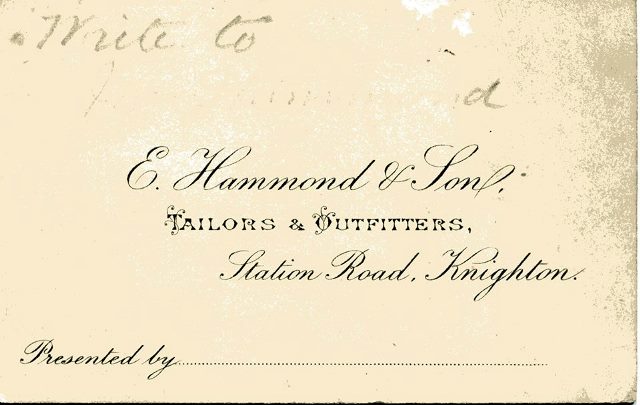 Write to
E. Hammond & Son,
TAILORS & OUTFITTERS,
Station Road, Knighton.
Presented by